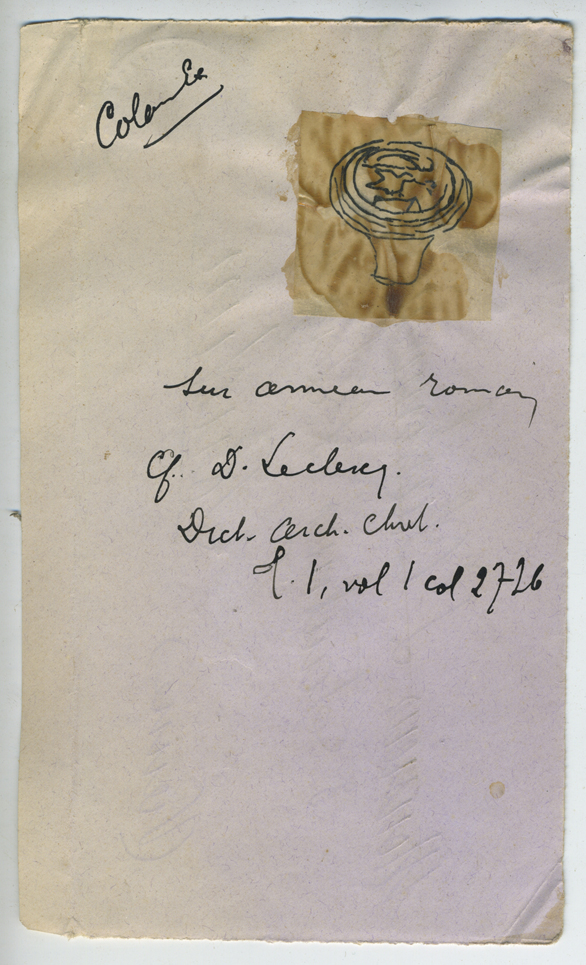 Colombe
sur anneau romain
Cf. D. Leclercq.
Dict. Arch. Chret.
T. 1, vol 1 col 2726